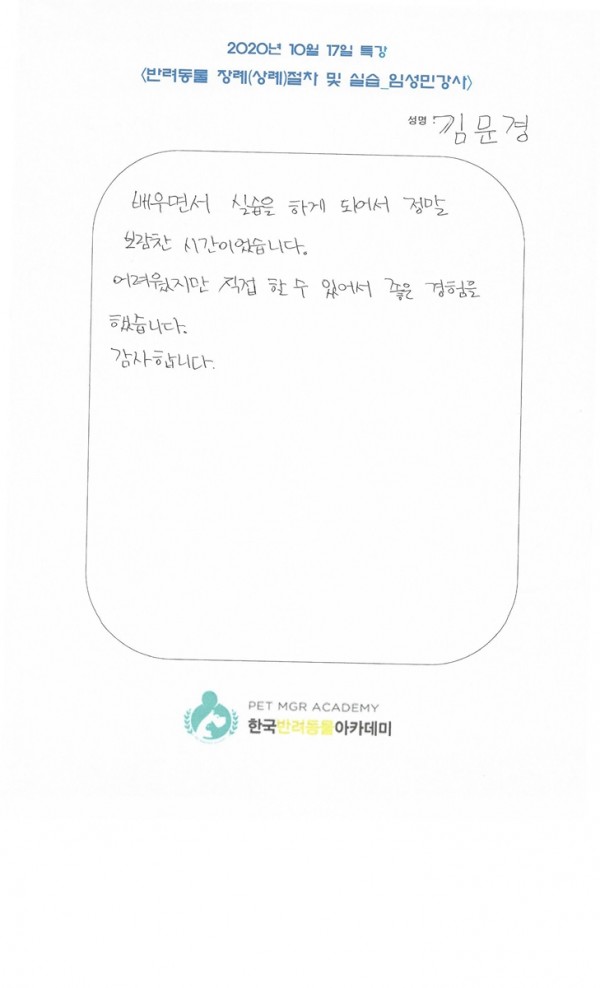 2020년 10월 17일 특강
<반려동물 장례(상례)절차 및 실습_임성민강사>
성명 : 김문경
배우면서 실습을 하게 되어서 정말
보람찬 시간이었습니다.
어려웠지만 직접 할 수 있어서 좋은 경험을
했습니다.
감사합니다.
PET MGR ACADEMY
한국반려동물아카데미